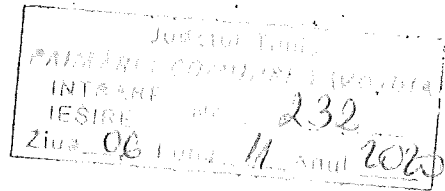 Județul Timiș
PRIMĂRIA COMUNEI
INTRARE
IEȘIRE Nr. 232
Ziua 06 Luna 11 Anul 2020